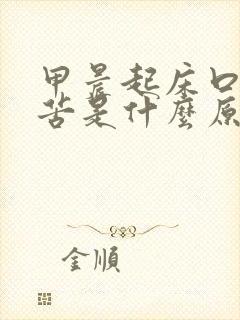 甲晨起床口
苦是什麼原
金順